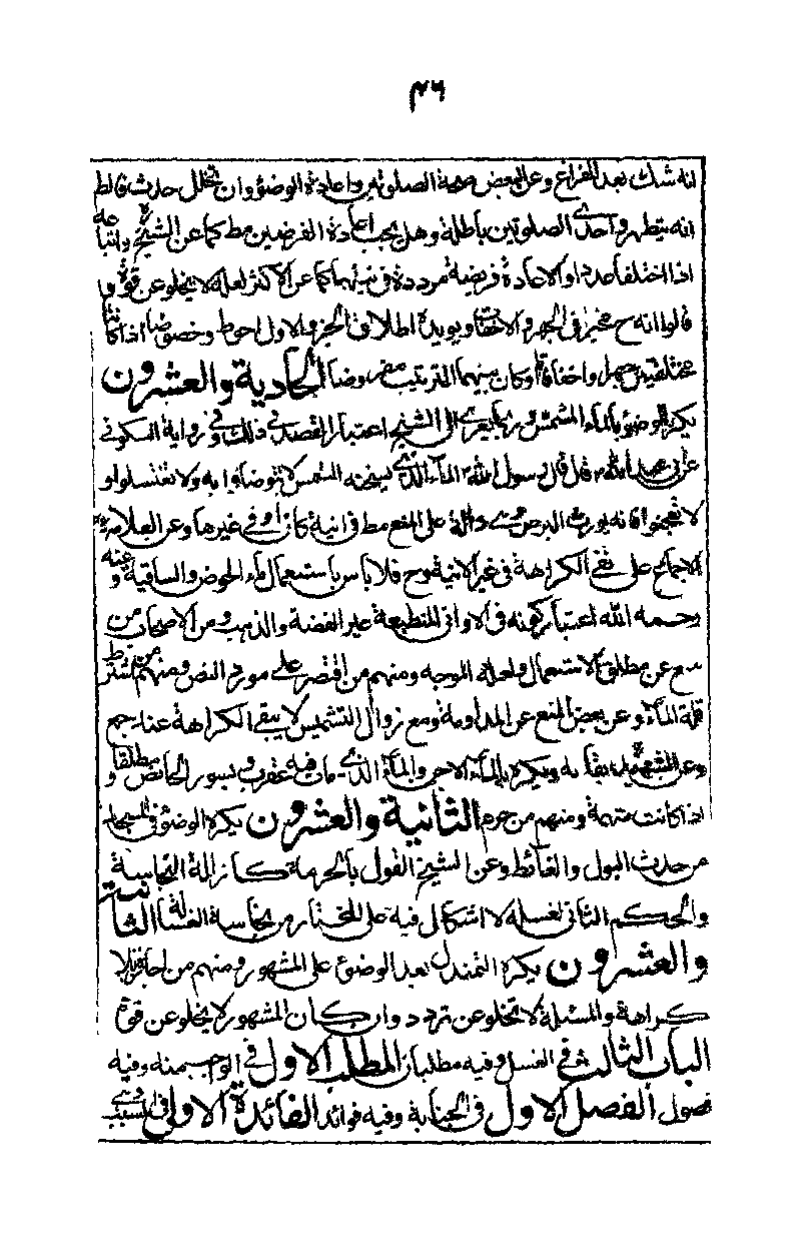 ٤٦
انه شك بعد الفراغ وعن البعض صحة الصلوتين واعادة الوضوء وان تخلل حدث فالظ
انه يتطهر واحدى الصلوتين باطلة وهل يجب اعادة الفرضين مط كما عن الشيخ ره واتباعه
اذا اختلفا عددا والاعادة فريضة مرددة في نيتهما كما عن الاكثر لعله لا يخلو عن قوة و
قالوا انه ح مخير في الجهر والاخفات ويويده اطلاق الخبر والاول احوط وخصوصا اذا كانتا
مختلفتين جهرا واخفاتا وكان بينهما الترتيب مفروضا الحادية والعشرون
يكره الوضوء بالماء المشمس وربما يعزى الى الشيخ اعتبار القصد في ذلك وفي رواية السكوني
عن ابي عبد الله قال قال رسول الله الماء الذي يسخنه الشمس لا توضاوا به ولا تغتسلوا و
لا تعجنوا فانه يورث البرص وهي دالة على المنع مط في انية كان او في غيرها وعن العلامة ره
الاجماع على نفي الكراهة في غير الانية وح فلا باس باستعمال ماء الحوض والساقية وعنه
رحمه الله اعتبار كونه في الاواني المنطبعة غير الفضة والذهب ومن الاصحاب من
منع عن مطلق الاستعمال ولعله الموجه ومنهم من اقتصر على مورد النص ومنهم من اشترط
قلة الماء وعن بعض المنع عن المداومة ومع زوال التشميس لا يبقى الكراهة عند جمع
وعن الشهيد بقائه ويكره بالماء الاجن والماء الذي مات فيه عقرب وبسور الحائض مطلقا و
اذا كانت متهمة ومنهم من حرم الثانية والعشرون يكره الوضوء في المسجد
من حدث البول والغائط وعن الشيخ القول بالحرمة كازالة النجاسة
والحكم الثاني لغسله لا اشكال فيه على المختار من نجاسة الغسالة الثالثة
والعشرون يكره التمندل بعد الوضوء على المشهور ومنهم من اجازه بلا
كراهة والمسئلة لا تخلو عن تردد وان كان المشهور لا يخلو عن قوة
الباب الثالث في الغسل وفيه مطلبان المطلب الاول في الواجب منه وفيه
فصول الفصل الاول في الجنابة وفيه فوائد الفائدة الاولى في السبب وهي